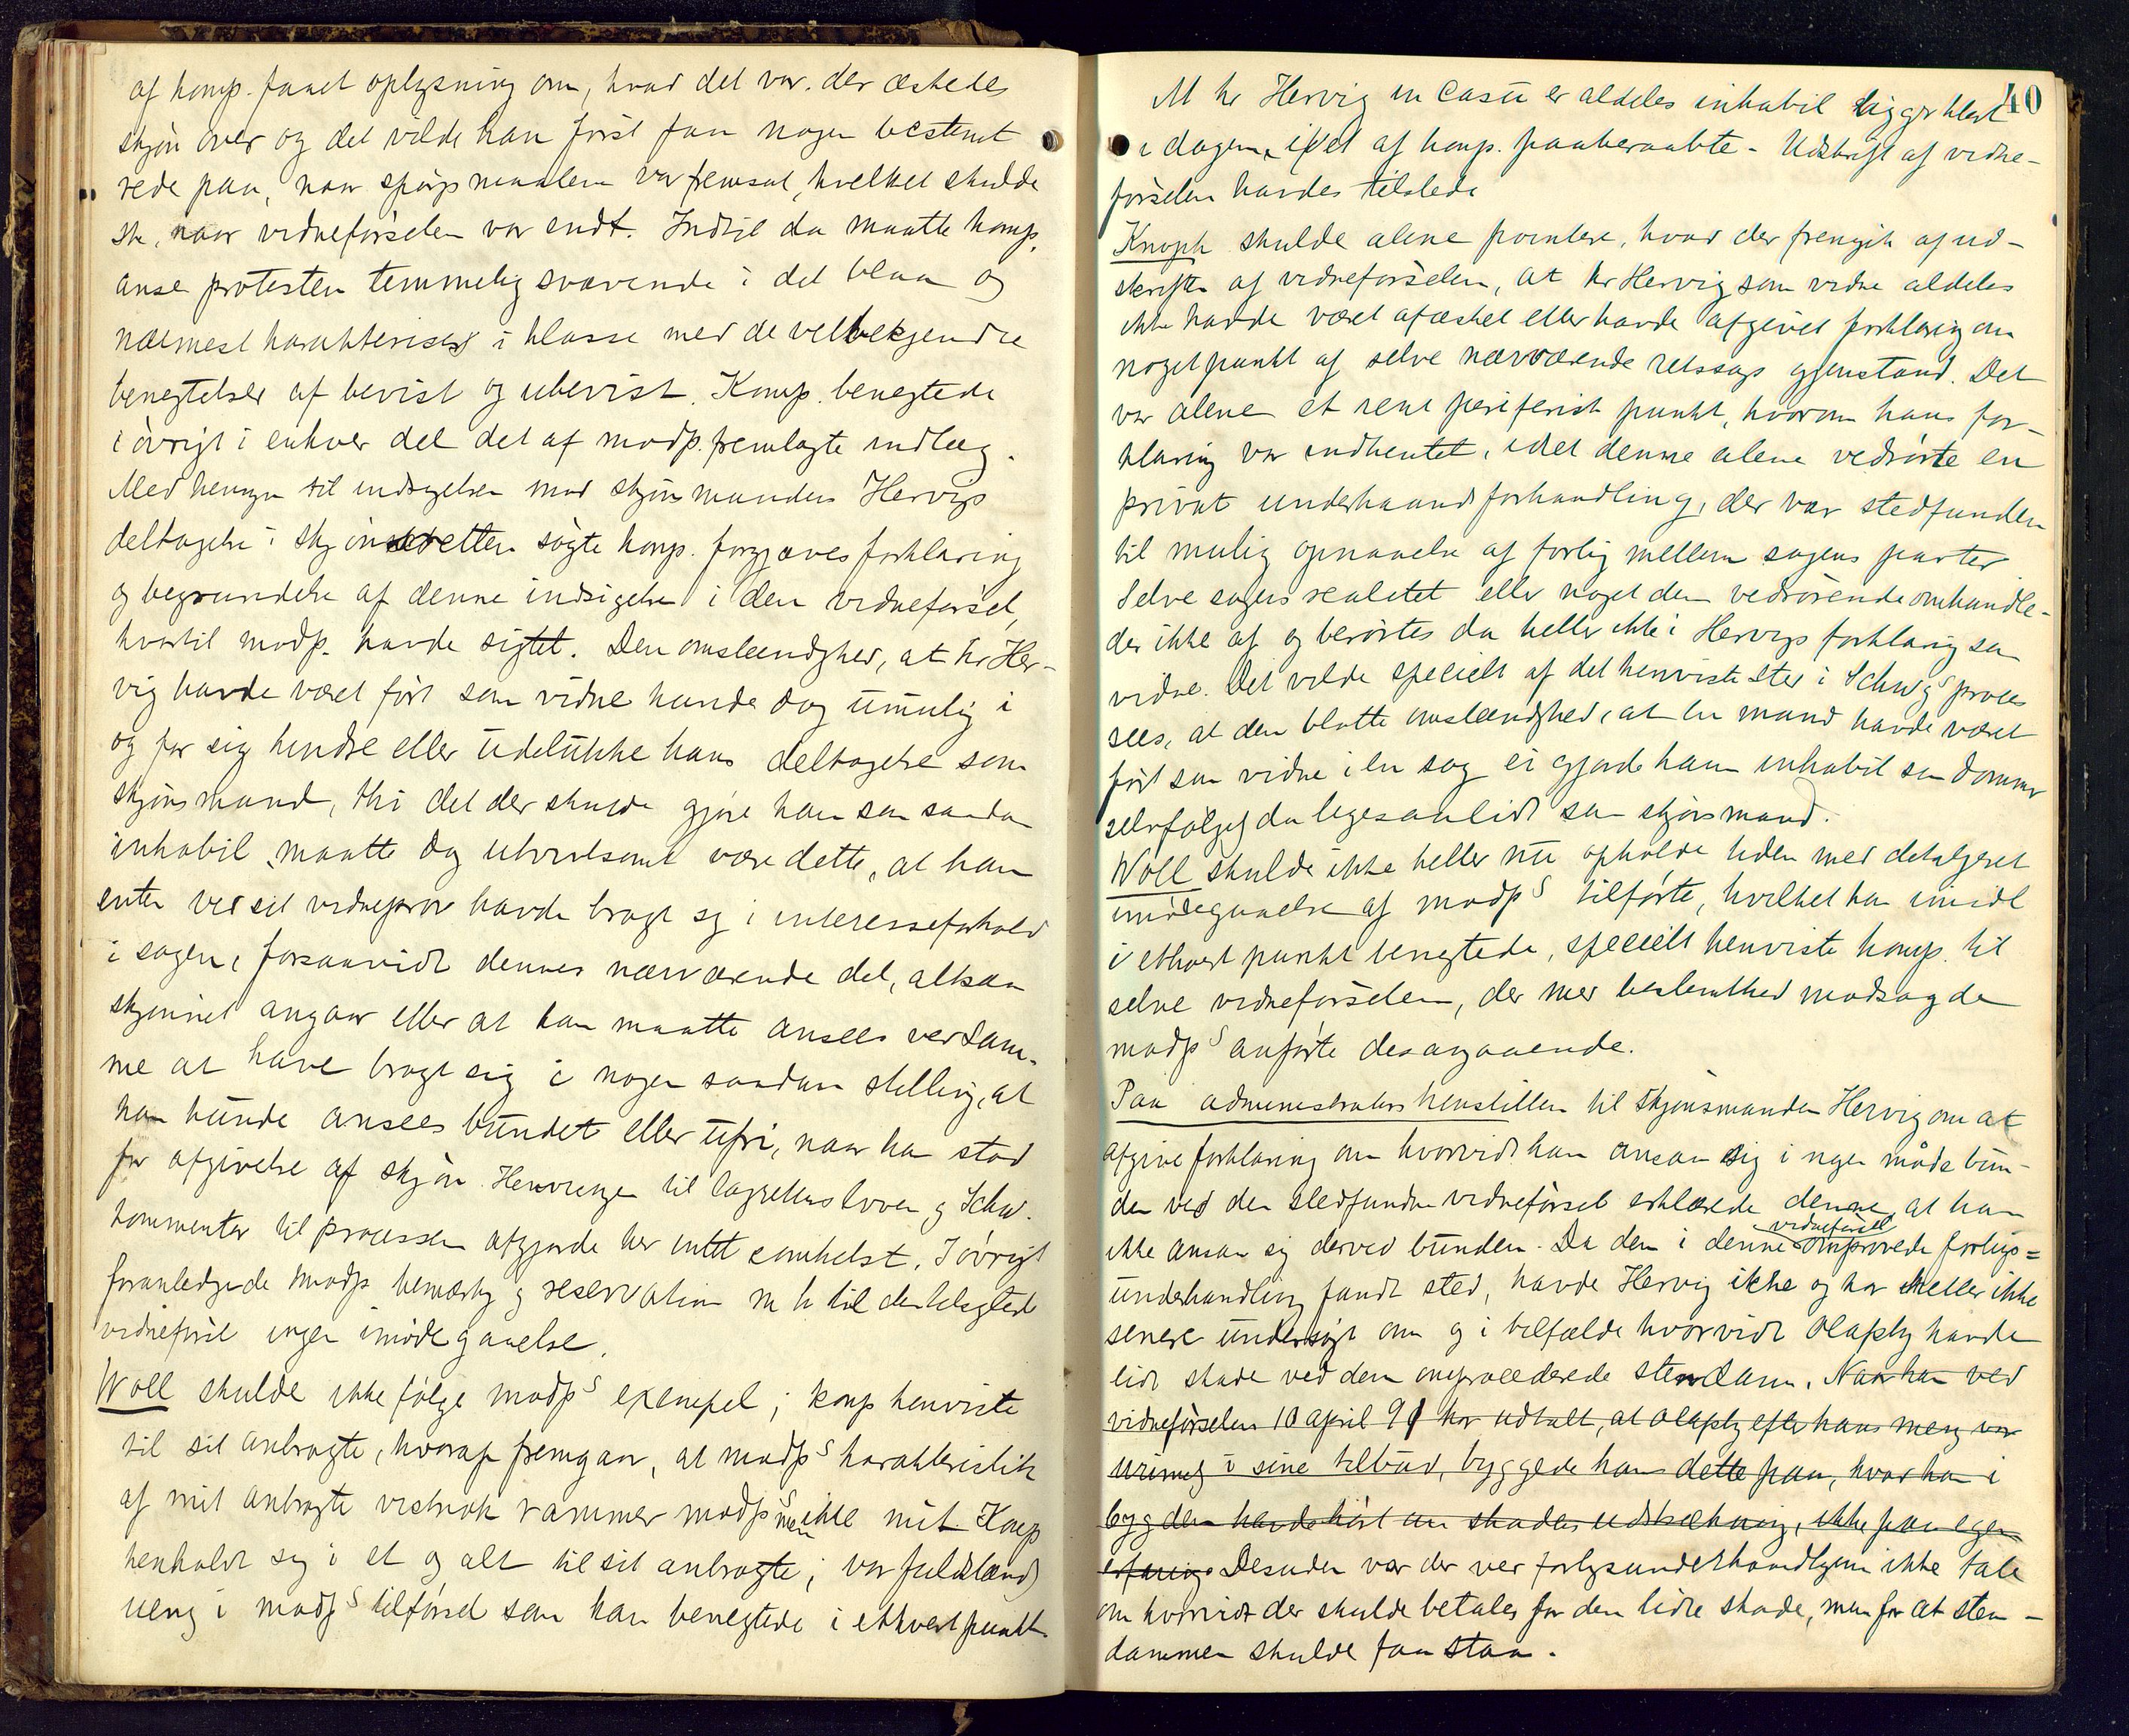 af komp. faaet oplysning om, hvad det var, der æskedes
skjøn over og det vilde han først faa nogen bestemt
rede paa, naar spørgsmaalene var fremsat, hvilket skulde
ske, naar vidneførselen var endt. Indtil da maatte komp.
anse protesten temmelig svævende i det blaa og
nærmest karakteriseres i klasse med de velbekjendte
benegtelser af bevist og ubevist. Komp. benegtede
iøvrigt i enhver del det af modp. fremlagte indlæg.
Med hensyn til indsigelsen mod skjønsmanden Hervigs
deltagelse i skjønsretten søgte komp. forgjæves forklaring
og begrundelse af denne indsigelse i den vidneførsel,
hvortil modp. havde sigtet. Den omstændighed, at hr Her-
vig havde været ført som vidne kunde dog umulig i
og for sig hindre eller udelukke hans deltagelse som
skjønsmand, thi det der skulde gjøre ham som saadan
inhabil maatte dog utvivlsomt være dette, at han
enten ved sit vidneprov havde bragt sig i interesseforhold
i sagen, forsaavidt dennes nærværende del, altsaa
skjønnet angaar eller at han maatte ansees ved sam-
me at have bragt sig i nogen saadan stilling, at
han kunde ansees bundet eller ufri, naar han stod
for afgivelse af skjøn. Henvisningen til lagrettensloven og Schw.
kommentar til processen afgjorde her intet somhelst. Iøvrigt
foranledigede modp bemærkg og reservation m h til den tilsigtede
vidneførsel ingen imødegaaelse.
Woll skulde ikke følge modps exempel; komp henviste
til sit anbragte, hvoraf fremgaar, at modps karakteristik
af mit anbragte vistnok rammer modps men ikke mit. Komp
henholdt sig i et og alt til sit anbragte; var fuldstænd
uenig i modps tilførsel som han benegtede i ethvert punkt.
40
At hr Hervig in casu er aldeles inhabil ligger klart
i dagen, idet af komp. paaberaabte - Udskrift af vidne-
førselen havdes tilstede
Knoph skulde alene pointere, hvad der fremgik af ud-
skriften af vidneførselen, at hr Hervig som vidne aldeles
ikke havde været afæsket eller havde afgivet forklaring om
noget punkt af selve nærværende retssags gjenstand. Det
var alene et rent periferisk punkt, hvorom hans for-
klaring var indhentet, idet denne alene vedrørte en
privat underhaandsforhandling, der var stedfunden
til mulig opnaaelse af forlig mellem sagens parter
Selve sagens realitet eller noget den vedrørende omhandle-
des ikke af og berørtes da heller ikke i Hervigs forklaring som
vidne. Det vilde specielt af det henviste sted i Schwgs proces
sees, at den blotte omstændighed, at en mand havde været
ført som vidne i en sag ei gjorde ham inhabil som dommer
selvfølgelig da ligesaalidt som skjønsmand.
Woll skulde ikke heller nu opholde tiden med detaljeret
imødegaaelse af modps tilførte, hvilket han imidl
i ethvert punkt benegtede, specielt henviste komp. til
selve vidneførselen, der med bestemthed modsagde
modps anførte desangaaende.
Paa administrators henstillen til skjønsmanden Hervig om at
afgive forklaring om hvorvidt han ansaa sig i nogen måde bun-
den ved den stedfundne vidneførsel erklærede denne, at han
ikke ansaa sig derved bunden. Da den i denne vidneførsel omprovede forligs=
underhandling fandt sted, havde Hervig ikke og har heller ikke
senere undersøgt om og i tilfælde hvorvidt Olapby havde
lidt skade ved den omprocederede stendam. Naar han ved
vidneførselen 10 april 91 har udtalt, at Olapby efter hans mening var
urimelig i sine tilbud, byggede han dette paa, hvad han i
bygden havde hørt om skadens udstrækning, ikke paa egen
erfaring. Desuden var der ved forligsunderhandlingen ikke tale
om hvorvidt der skulde betales for den lidte skade, men for at sten-
dammen skulde faa staa.